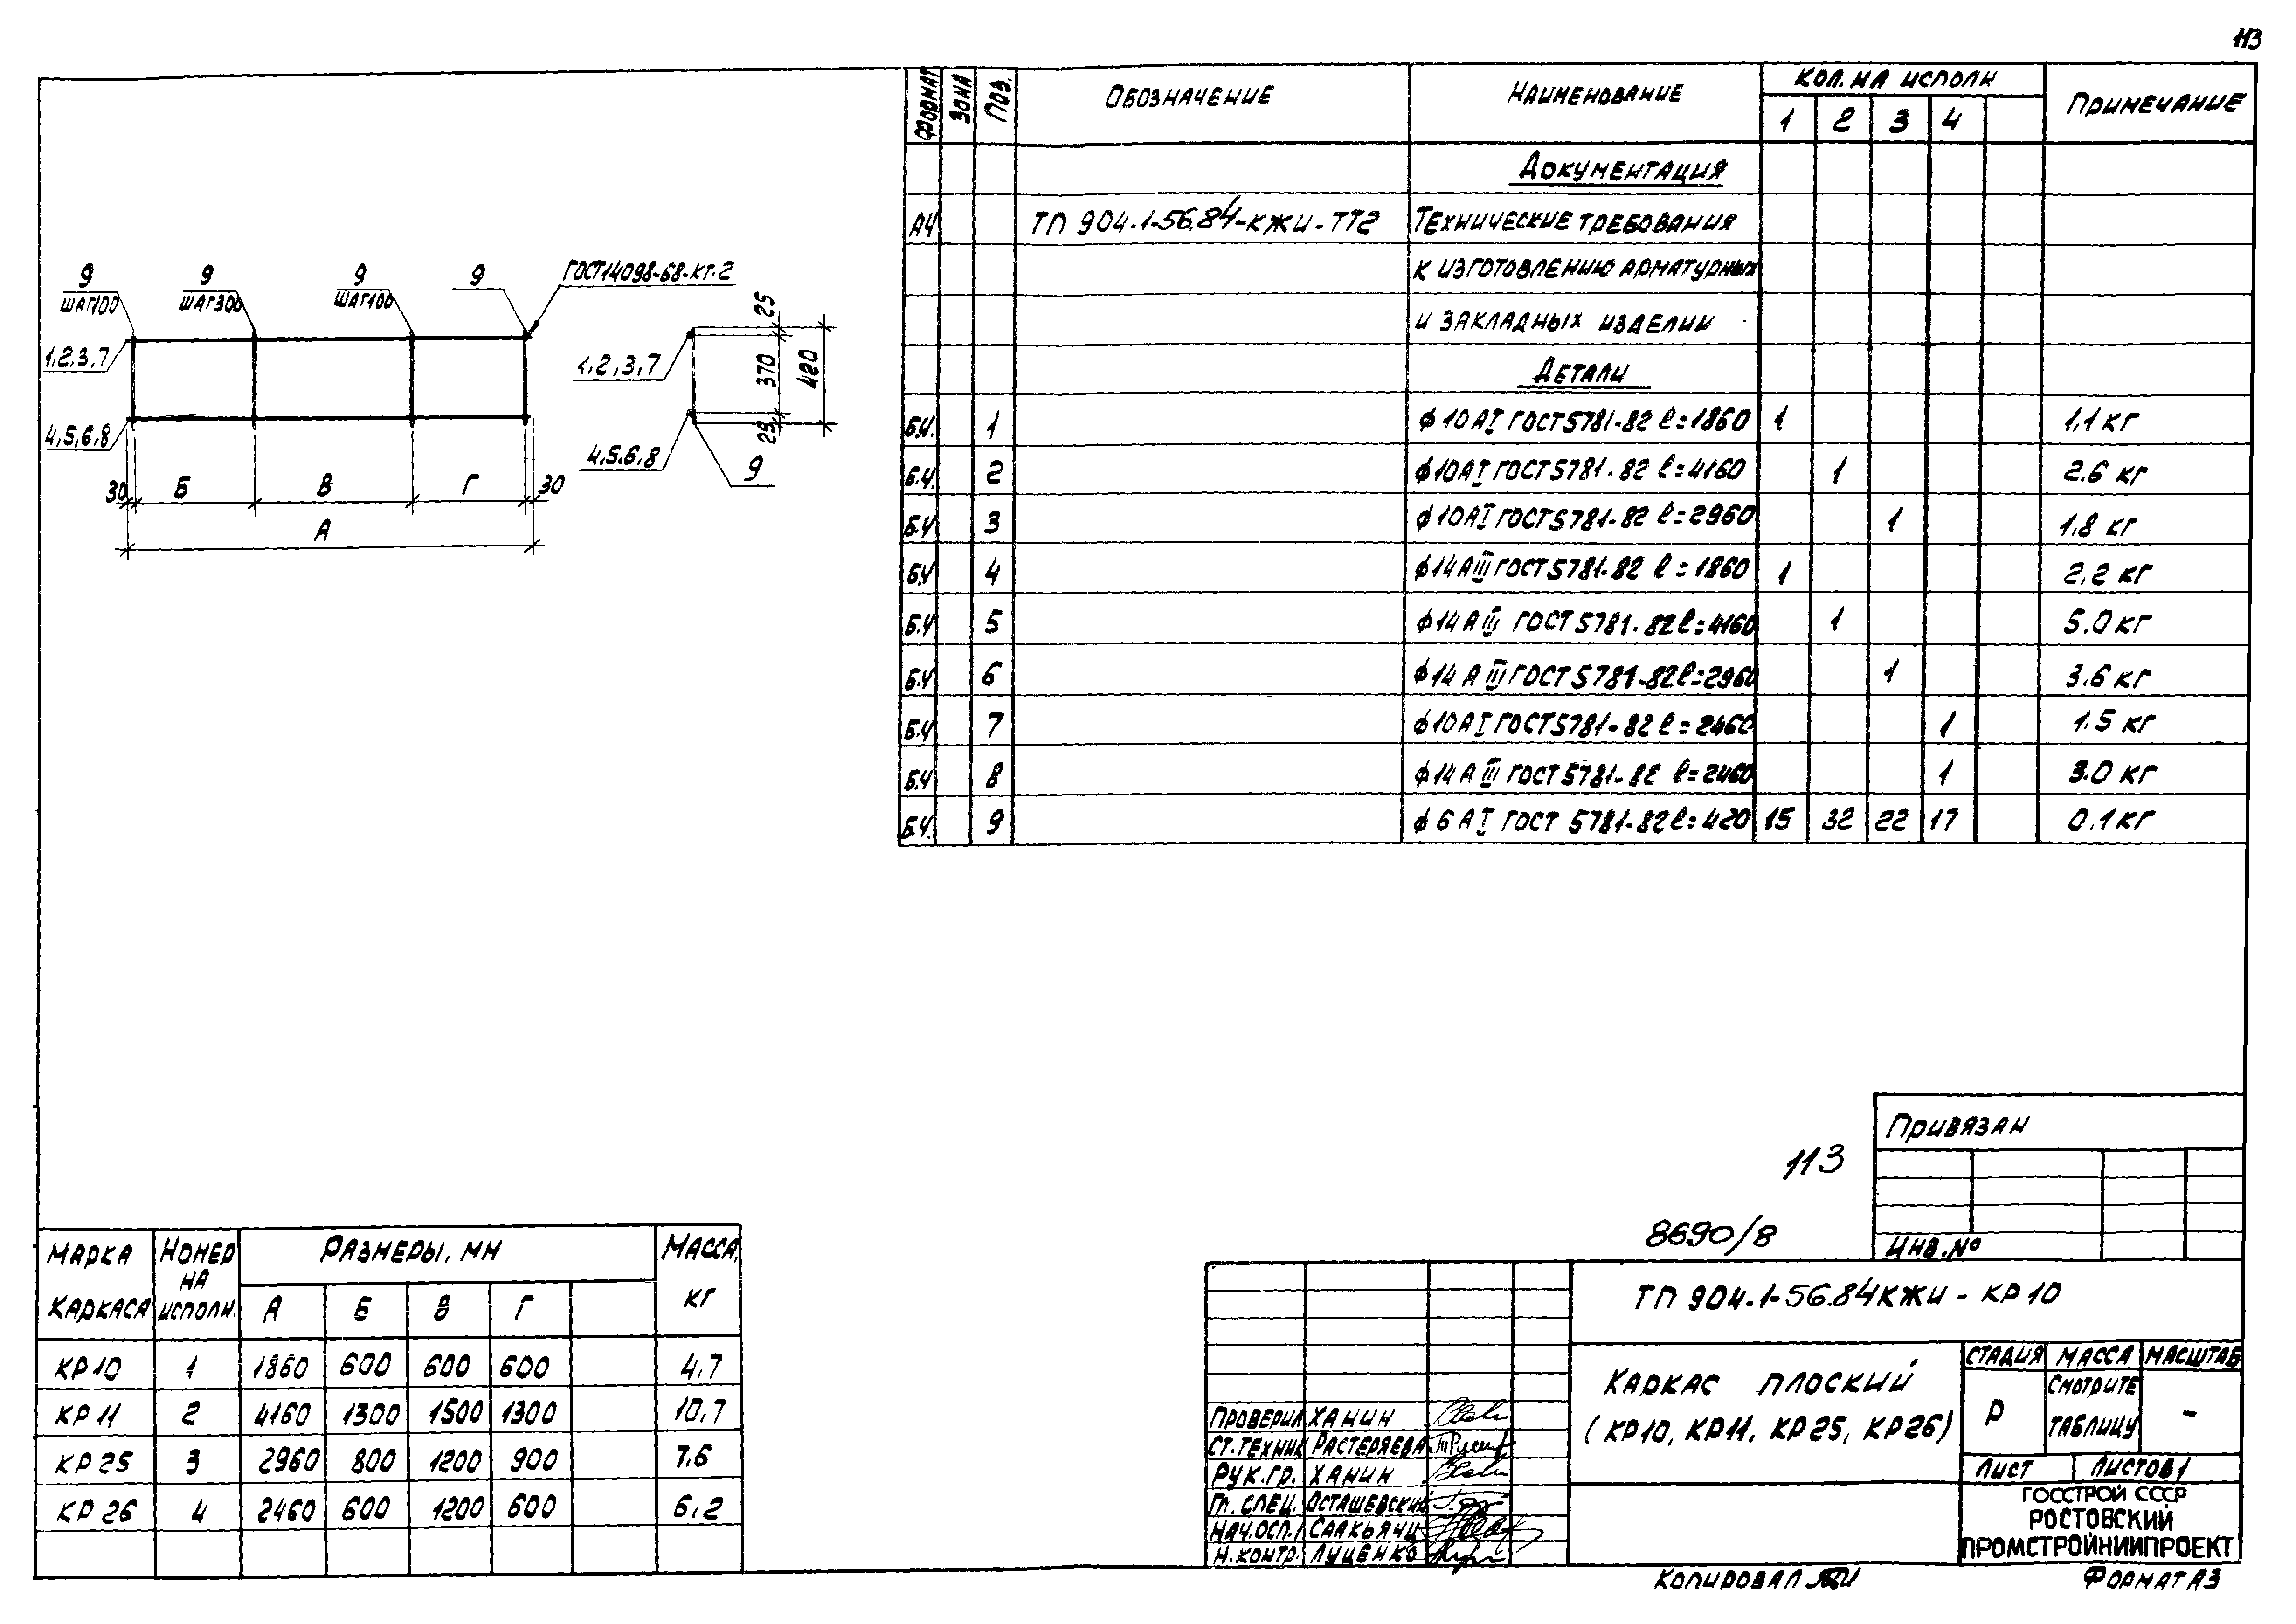 113
ФОРМАТ ЗОНА ПОЗ. ОБОЗНАЧЕНИЕ НАИМЕНОВАНИЕ КОЛ. НА ИСПОЛН ПРИМЕЧАНИЕ
1 2 3 4
ДОКУМЕНТАЦИЯ
А4 ТП 904.1-56.84-КЖИ-ТТ2 ТЕХНИЧЕСКИЕ ТРЕБОВАНИЯ
К ИЗГОТОВЛЕНИЮ АРМАТУРНЫХ
И ЗАКЛАДНЫХ ИЗДЕЛИИ
ДЕТАЛИ
Б.Ч. 1 ϕ10АI ГОСТ5781-82 ℓ=1860 1 1,1 КГ
Б.Ч. 2 ϕ10АI ГОСТ5781-82 ℓ=4160 1 2.6 КГ
Б.Ч 3 ϕ10АI ГОСТ5781-82 ℓ=2960 1 1,8 КГ
Б.Ч 4 ϕ14АIII ГОСТ5781-82 ℓ=1860 1 2,2 КГ
Б.Ч 5 ϕ14АIII ГОСТ5781-82 ℓ=4160 1 5.0 КГ
Б.Ч 6 ϕ14АIII ГОСТ5781-82 ℓ=2960 1 3.6 КГ
Б.Ч 7 ϕ10АI ГОСТ5781-82 ℓ=2460 1 1.5 КГ
Б.Ч 8 ϕ14АIII ГОСТ5781-82 ℓ=2460 1 3.0 КГ
Б.Ч. 9 ϕ6АI ГОСТ 5781-82 ℓ=420 15 32 22 17 0.1 КГ
9 9 9 9 ГОСТ14098-68-КТ-2
ШАГ100 ШАГ300 ШАГ100
1,2,3,7
4,5,6,8
30 Б В Г 30
А
1,2,3,7
4,5,6,8
9
25
370
25
420
МАРКА КАРКАСА НОМЕР НА ИСПОЛН. РАЗМЕРЫ, ММ МАССА, КГ
А Б В Г
КР10 1 1860 600 600 600 4,7
КР11 2 4160 1300 1500 1300 10,7
КР25 3 2960 800 1200 900 7.6
КР26 4 2460 600 1200 600 6,2
113
8690/8
ПРИВЯЗАН
ИНВ.№
ТП 904.1-56.84КЖИ - КР10
КАРКАС ПЛОСКИЙ
(КР10, КР11, КР25, КР26)
СТАДИЯ МАССА МАСШТАБ
Р СМОТРИТЕ ТАБЛИЦУ -
ЛИСТ ЛИСТОВ 1
ГОССТРОЙ СССР
РОСТОВСКИЙ
ПРОМСТРОЙНИИПРОЕКТ
ПРОВЕРИЛ ХАНИН
СТ.ТЕХНИК РАСТЕРЯЕВА
РУК.ГР. ХАНИН
ГЛ.СПЕЦ. ОСТАШЕВСКИЙ
НАЧ.ОСП.1 СААКЬЯНЦ
Н.КОНТР. ЛУЦЕНКО
КОПИРОВАЛ
ФОРМАТ А3